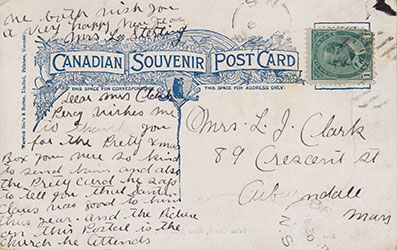 we both wish you
a very happy New Year
Mrs L Sterling
CANADIAN SOUVENIR POST CARD
THIS SPACE FOR CORRESPONDENCE
THIS SPACE FOR ADDRESS ONLY.
Warwick Bro's & Rutter, Limited, Printers, Toronto.
Dear Mrs Clark
Percy wishes me
to thank you
for the Pretty Xmas
Box you were so kind
to send him and also
the Pretty Card he says
to tell you that Santa
Claus was good to him
this year. and the Picture
on this Postal is the
church he attends
Mrs. L. J. Clark
89 Crescent st
Auburndale
Mass
N.S.